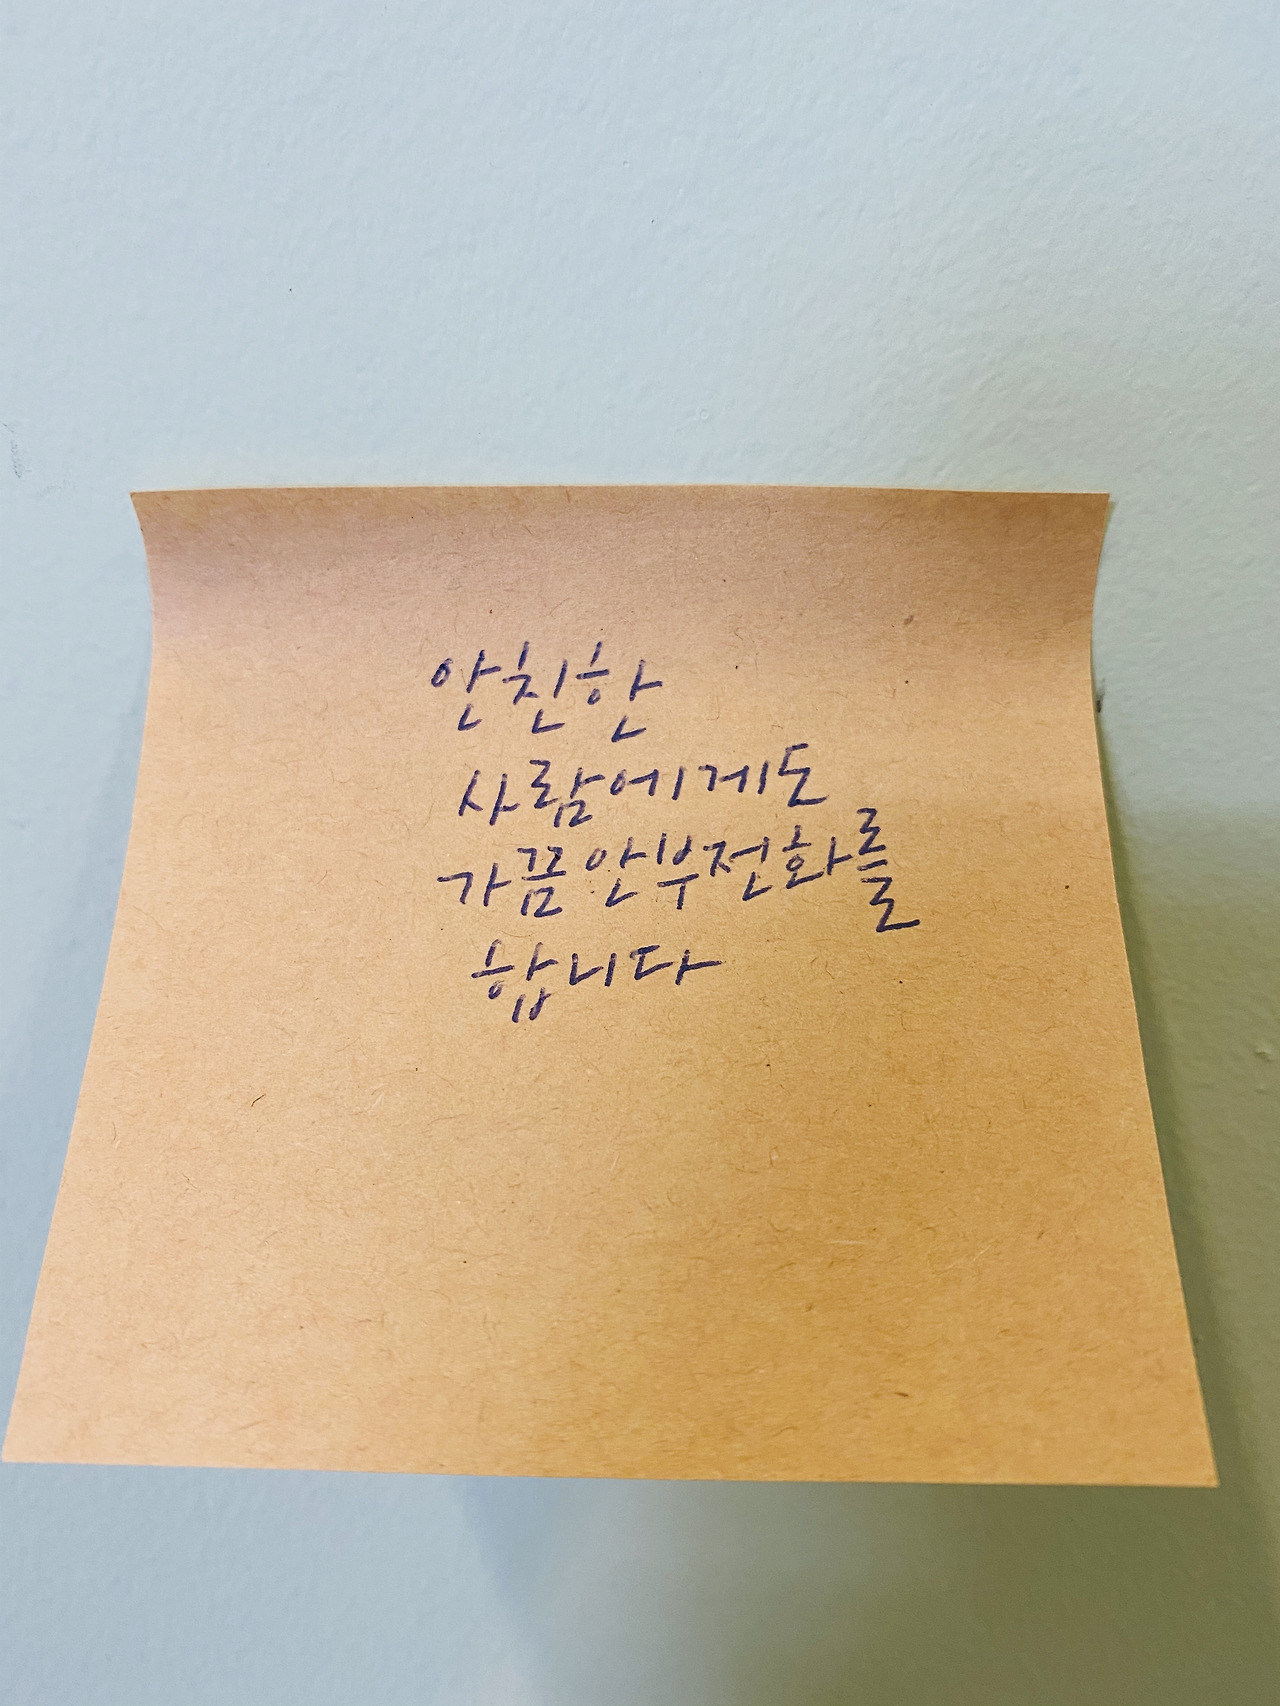 안친한
사람에게도
가끔안부전화를
합니다